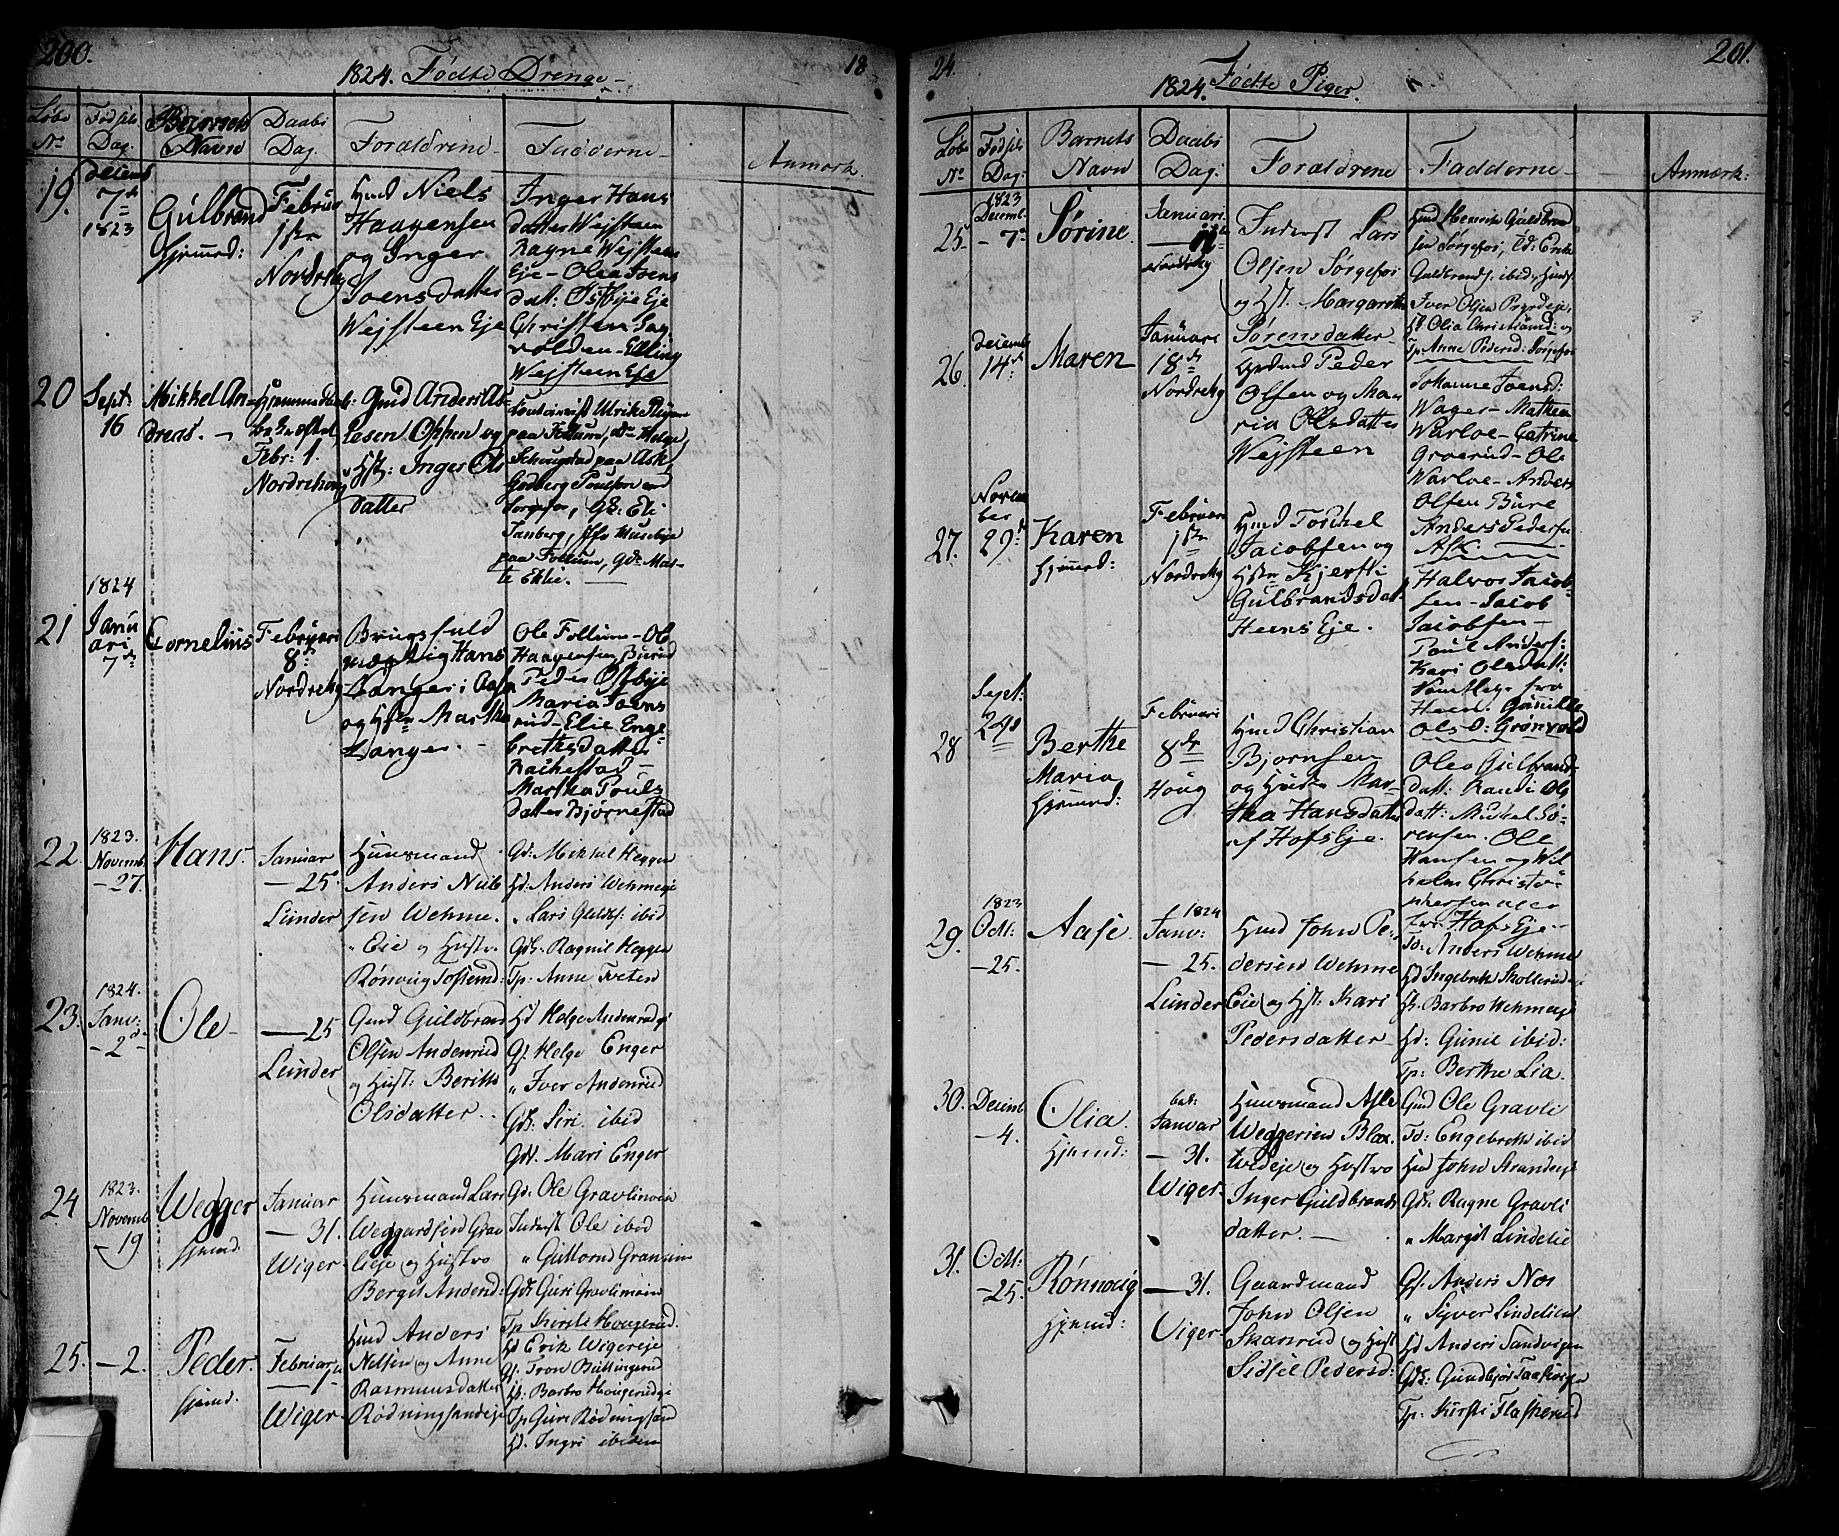 200.
1824. Fødte Drenge
18
Løbe No
Fødsels Dag.
Barnets Navn
Daabs Dag.
Forældrene
Fadderne
Anmærk.
19.
Decemb 7de 1823
Gulbrand
hjemmd:
Februar
1ste
Nordrehg
Hmd Niels
Haagensen
og Inger
Joensdatter
Wejsteen Eje
Inger Hans
datter Wejsteen
Ragne Wejsteen
Eje - Olea Joens
datt: Østbye Eje
Christen Sag
volden - Elling
Wejsteen Eje
20
Sept 16
Mikkel An-
dreas.
Hjemmedaab:
Febr: 1.
Nordrehoug
Gmd Anders
Oppen og
Hst: Inger Ols
datter
Ulrik
paa Follum, Helge
paa Ask,
Gudberg Poulsen
Sørgefos, Gk: Eli
paa Follum, Gdk Mar-
te Eklie.
21
1824
Janu
ari
7de
Cornelius
Februari
8de
Nordrehg
Brugsfuld
mægtig Hans
Langer i Aasa
og Hstr Martha
Langer.
Ole Follum - Ole
Haagensen Burud
Peder Østbye
Maria Joens
rud - Elie Enge
brethsdatter
Rakkestad
Martha Pouls
datter Bjørnestad
22
1823.
Novemb.
- 27.
Hans.
Januar
- 25.
Lunder
Huusmand
Anders Nub
sen Wehme.
Eie og Hustr.
Rønnvig Tostensd:
Gd: Mikkel Heggen
Hd: Anders Wehmeeje
" Lars Guldbs: ibid
Gdk: Ragnil Heggen
Tp: Anne Tveten
23.
1824.
Janv:
- 2de -
Ole
- 25
Lunder
Gmd Guldbrand
Olsen Andenrud
og Hust: Berithe
Olsdatter.
Hd Helge Andenrudeje
Gf Helge Enger
" Iver Andenrud
Gdk: Siri ibid
Gdk. Mari Enger
24
1823.
Novemb
- 19
Wegger
hjemmd.
Januar
- 31.
Wiger
Huusmand Lars
Weggersen Grav
lieje og Hustro
Bergit Andersd:
Gd: Ole Gravlimoen
Inderst Ole ibid
" Guttorm Granum
Gdk Guri Gravlimoen
Tp Kirsti Hougerud.
25.
- 2.
Peder.
hjemmd.
Februar
Wiger
Hmd Anders
Nelsen og Anne
Rasmusdatter
Rødningsandeje
Hd Erik Wigereje
Gf: Tron Buttingsrud
Hk: Barbro Hougerudeje
Tp Guri Rødningsand
Hd. Ingri ibidem
24.
1824. Fødte Piger.
201.
Løbe No
Fødsels Dag:
Barnets Navn
Daabs Dag:
Forældrene
Fadderne
Anmærk:
25
1823
Decemb.
- 7de
Sørine
Januari
Nordrehg
Inderst Lars
Olsen Sørgefos
og Hst. Margarethe
Sørensdatter
Hmd Henrik Guldbrand
sen Sørgefos,
Guldbrands: ibid; Hmd
Iver Olsen
Hk Olia Christiansd: og
Tp Anne Pedersd: Sørgefos
26
Decemb
14de
Maren
Januari
18de
Nordrehg
Peder
Olsen og Ma
ria Olsdatter
Wejsteen
Johanne Joensd:
Wager - Mathea
Warloe - Catrine
Groerud - Ole
Warloe - Anders
Olsen Bure
Anders Pedersen
Ask.
27.
Novem
ber
29de
Karen
hjemmd:
Februari
1ste
Nordrehg
Hmd Torkel
Jacobsen og
Hstr Kjersti
Gulbrandsdatt
Heens Eje.
Halvor Jacob
sen - Jacob
Jacobsen -
Poul Anders:
Kari Olsdatt:
fra
Heen: Gunille
Olsd: Grønvold
28
Sept:
29de
Berthe
Maria
hjemmd:
Februari
8de
Houg
Hmd Christian
Bjornsen
og Hustr Mar-
tha Hansdatter
af Hofs Eje.
Olea Gulbrands
datt: Randi Ols
datt: Mikkel Sø-
rensen. Ole
Hansen og Wil
helm Christo-
phersen
Hofs Eje
29.
1823
Octt:
- 25.
Aase.
1824
Janv:
- 25.
Lunder
Hmd John Pe-
dersen Wehme
Eie og Hst: Kari
Pedersdatter
Anders Wehme
Hd Ingebreth Skollerudeje
Hk: Barbro Wehmeeje
Hd: Gunil ibid:
Tp: Berthe Lia.
30.
Decemb
- 4.
Olia.
Hjemmd:
Januar
- 31.
Wiger
Huusmand Asle
Weggersen Blak
tvedeje og Hustro
Inger Guldbrands
datter.
Gmd Ole Gravli
Engebreth ibid
Hmd John Strandeje
Gdk: Ragne Gravli
" Margit Lindelie
31.
Octt:
- 25.
Rønnovig
hjemmd:
- 31.
Viger
Gaardmand
John Olsen
Skarrud og Hust
Sidsel Pedersd:
Gf: Anders Nos
" Syver Lindelien
Hd Anders Sandvigen
Gdk: Gundbjør
Tp: Kirsti Flaskerud